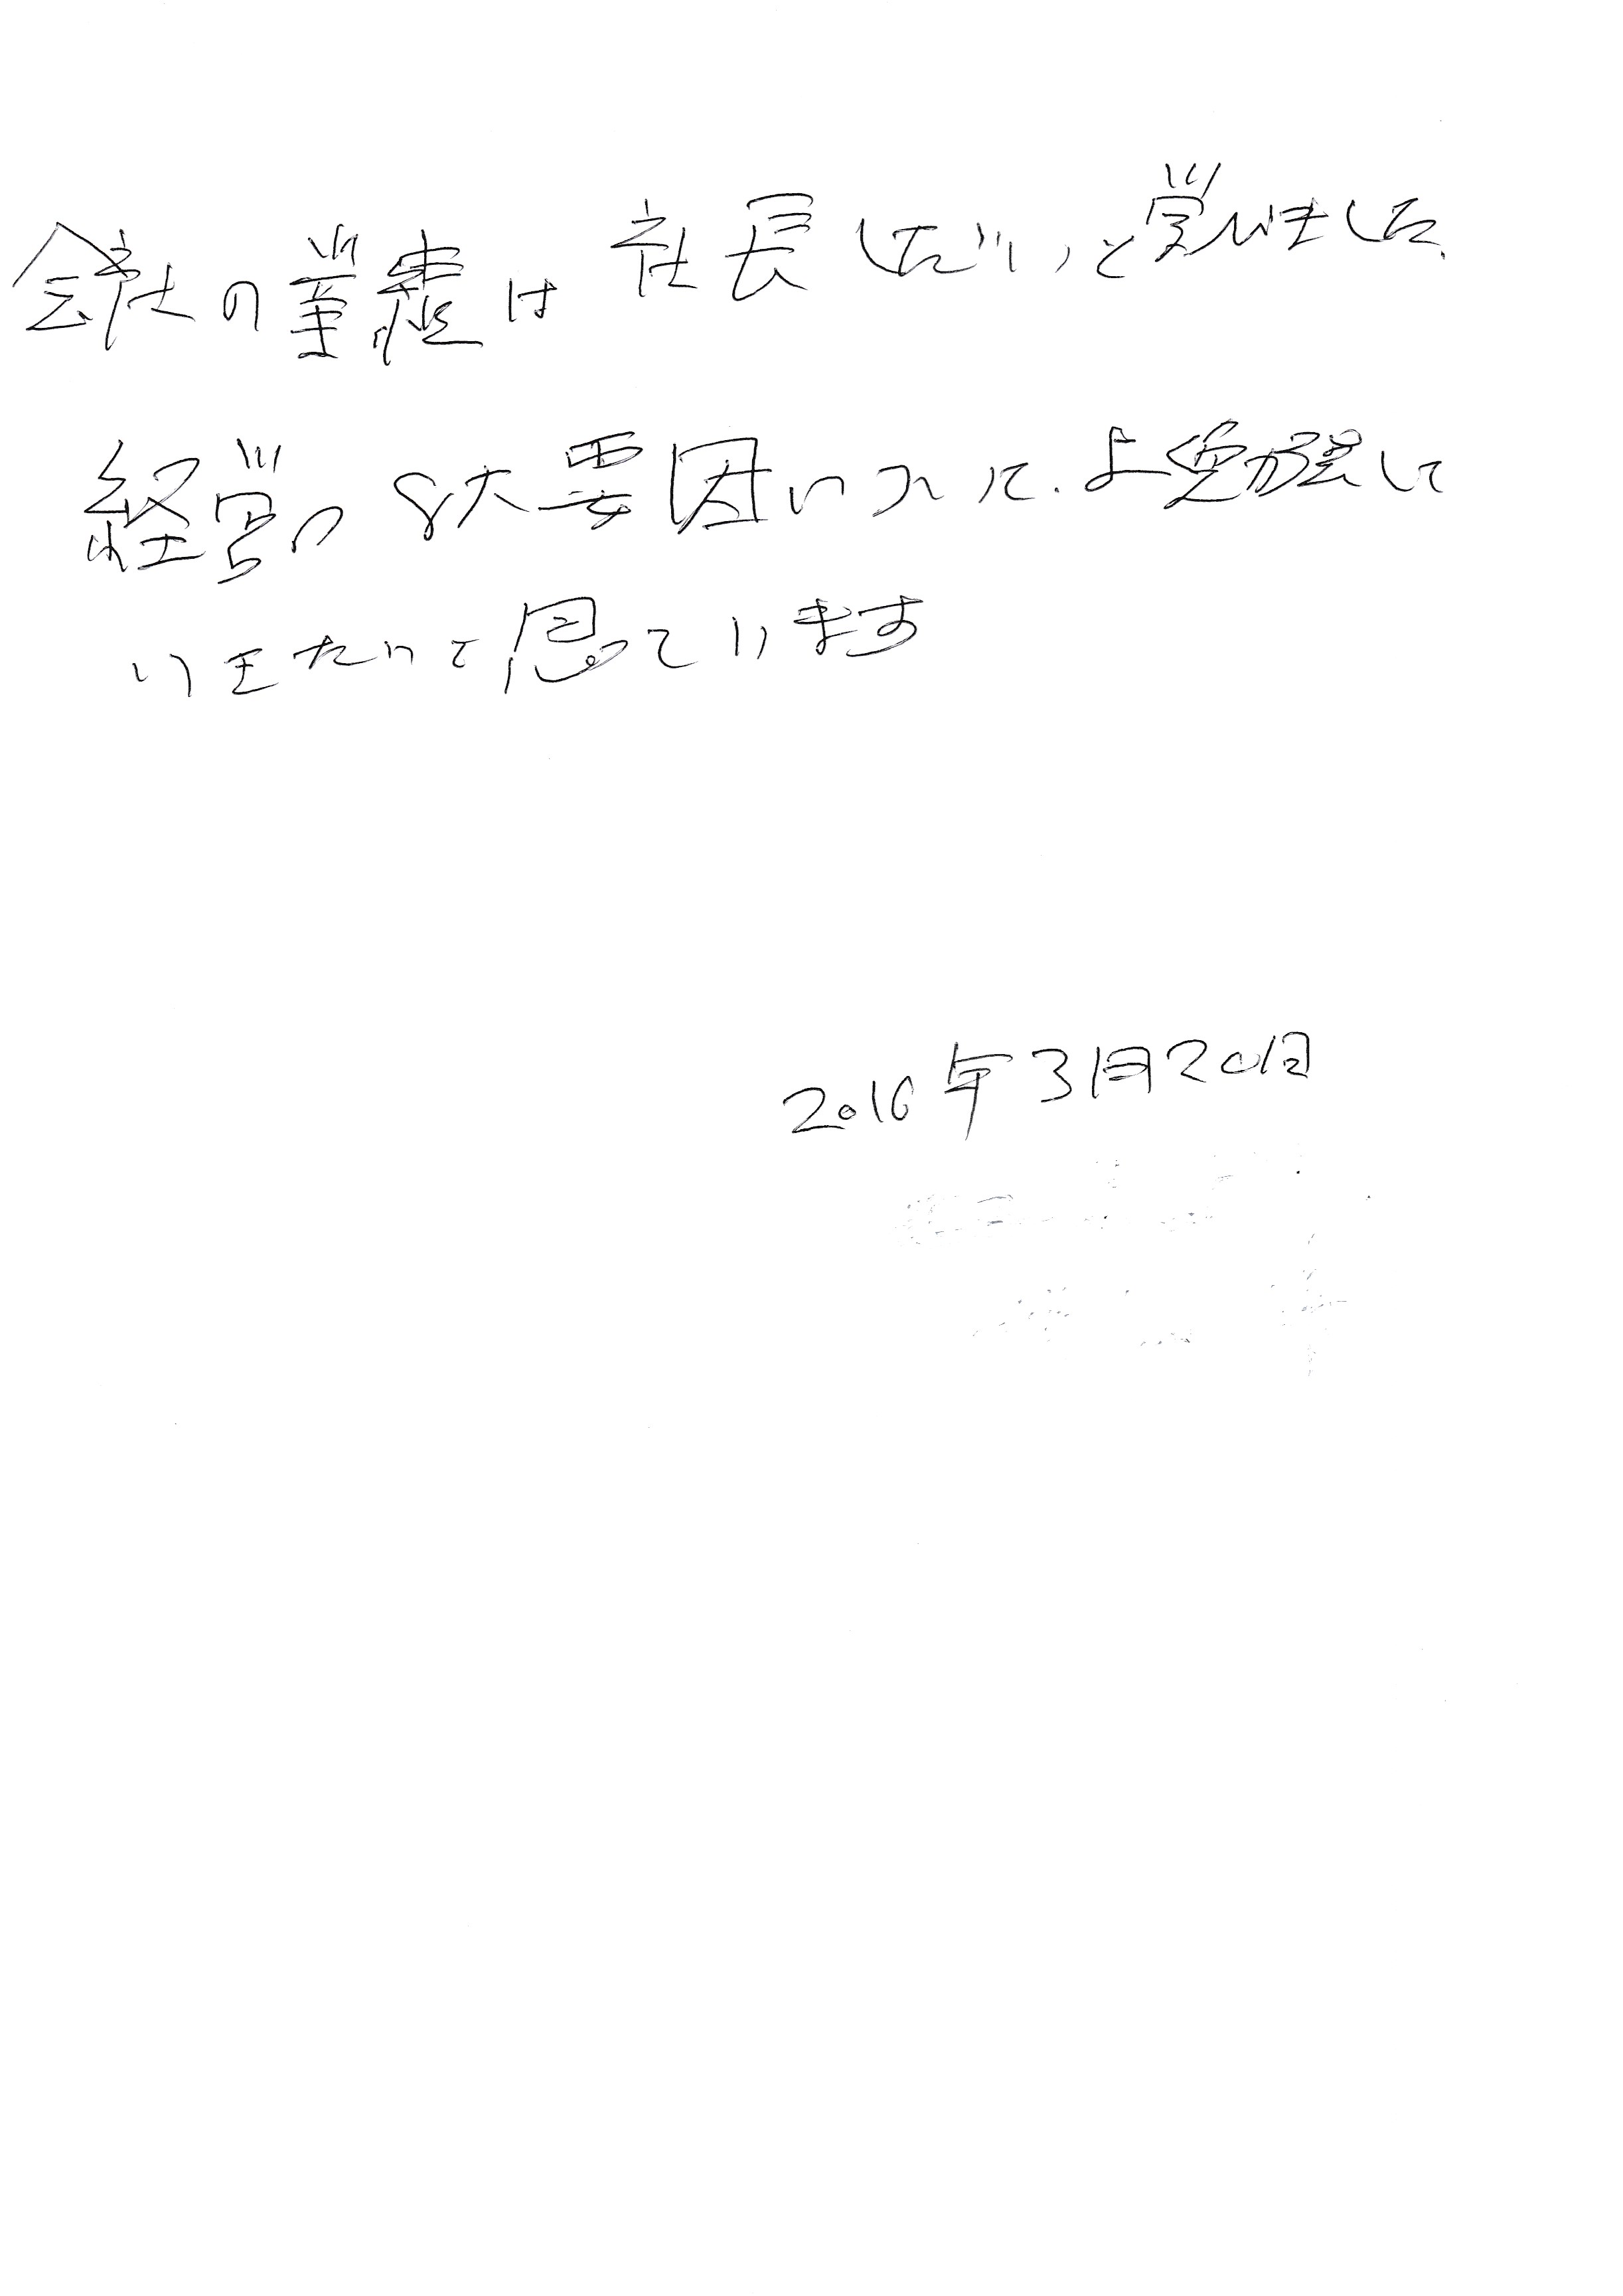 会社の業績は社長しだい、と学びました、
経営の8大要因について、よく勉強して
いきたいと思っています
2016年3月20日